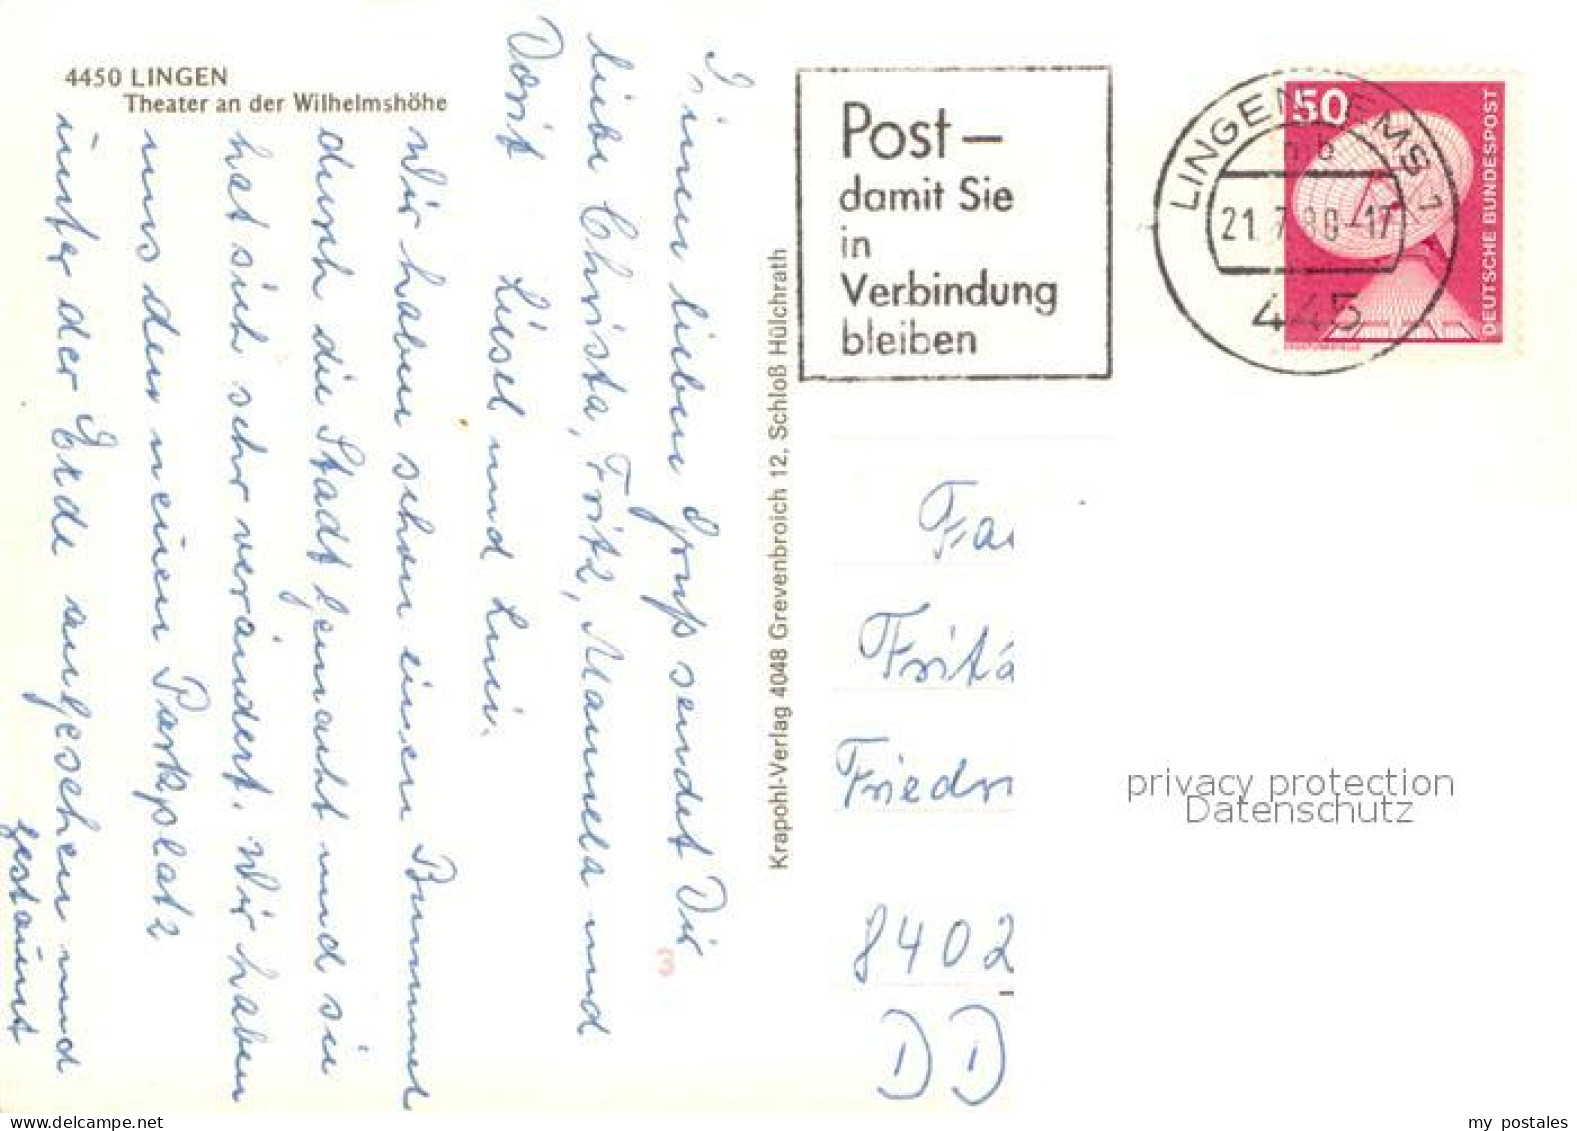 4450 LINGEN
Theater an der Wilhelmshöhe
Einen lieben Gruß sendet Dir
liebe Christa, Fritz, Manuela und
Dorit Liesel und Luii.
Wir haben schon einen Bummel
durch die Stadt gemacht und sie
hat sich sehr verändert. Wir haben
uns den neuen Parkplatz
unter der Erde angesehen und
gestaunt
Krapohl-Verlag 4048 Grevenbroich 12, Schloß Hülchrath
Post –
damit Sie
in
Verbindung
bleiben
LINGEN, EMS 1
nb
21.7.80-17
445
50
DEUTSCHE BUNDESPOST
Fa
Fritz
Friedr
8402
DD
3
privacy protection
Datenschutz
my postales